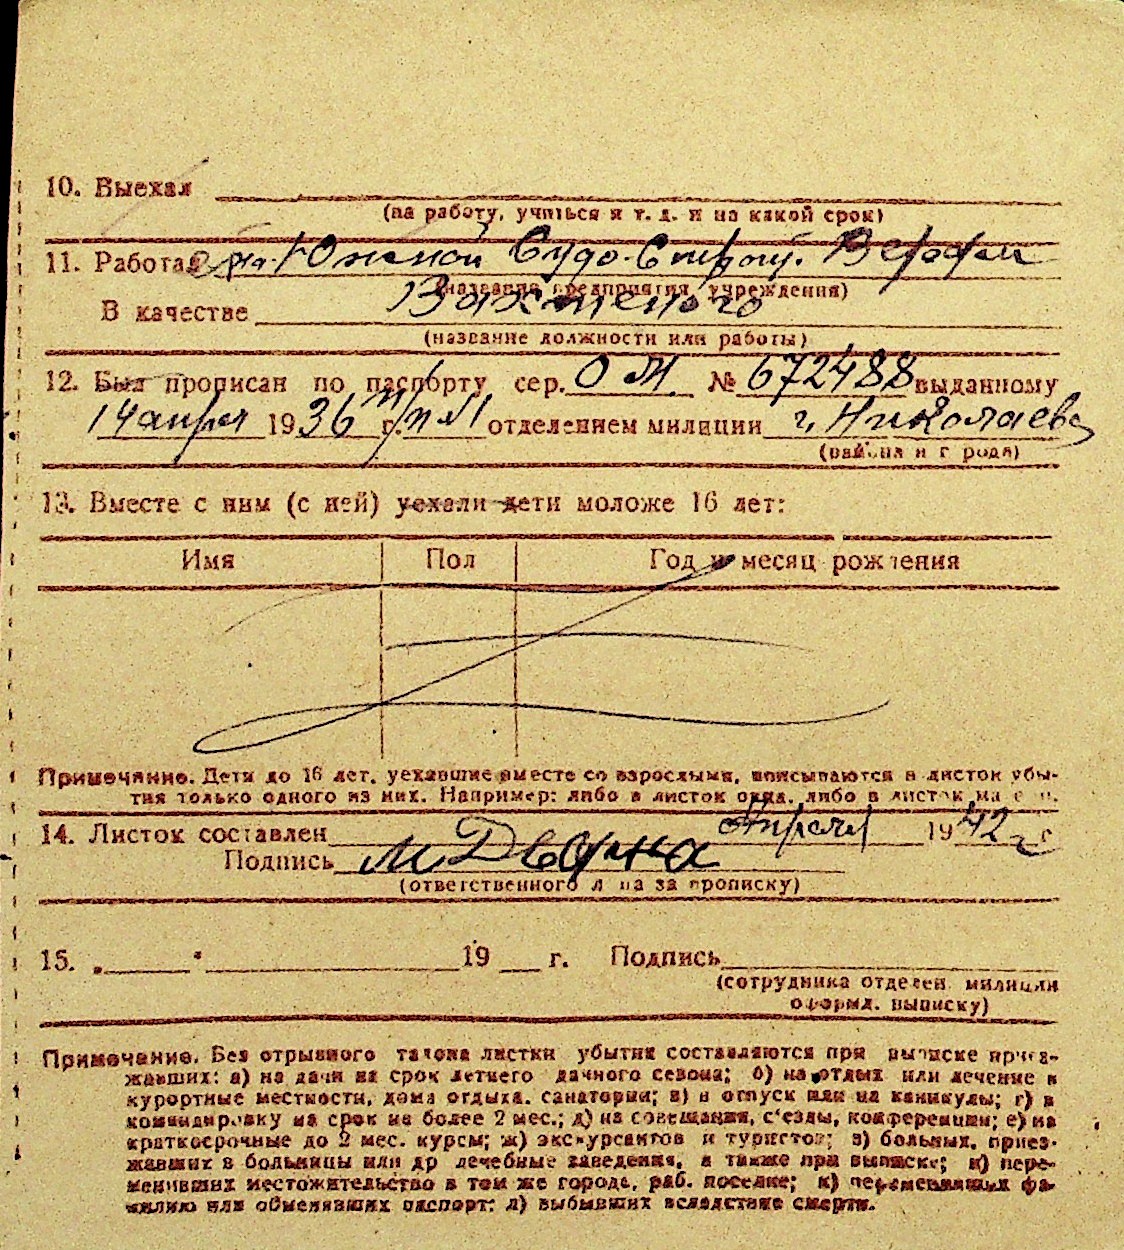 10. Выехал
(на работу, учиться и т. д. и на какой срок)
11. Работал на Южной Судо-Строит. Верфи
(название предприятия, учреждения)
В качестве
(название должности или работы)
12. Был прописан по паспорту сер. ОМ № 672488 выданному
14 апреля 1936 г. отделением милиции г. Николаева
(района и города)
13. Вместе с ним (с ней) уехали дети моложе 16 лет:
Имя Пол Год и месяц рождения
Примечание. Дети до 16 лет, уехавшие вместе со взрослыми, вписываются в листок убы-
тия только одного из них. Например: либо в листок отца, либо в листок матери.
14. Листок составлен Апреля 1942 г.
Подпись
(ответственного лица за прописку)
15. „ “ 19 г. Подпись
(сотрудника отделен. милиции
оформл. выписку)
Примечание. Без отрывного талона листки убытия составляются при выписке приез-
жавших: а) на дачи на срок летнего дачного сезона; б) на отдых или лечение в
курортные местности, дома отдыха, санатории; в) в отпуск или на каникулы; г) в
командировку на срок не более 2 мес.; д) на совещания, с'езды, конференции; е) на
краткосрочные до 2 мес. курсы; ж) экскурсантов и туристов; з) больных, приез-
жавших в больницы или др лечебные заведения, а также при выписке; и) пере-
менивших местожительство в том же городе, раб. поселке; к) переменивших фа-
милию или обменявших паспорт; л) выбывших вследствие смерти.